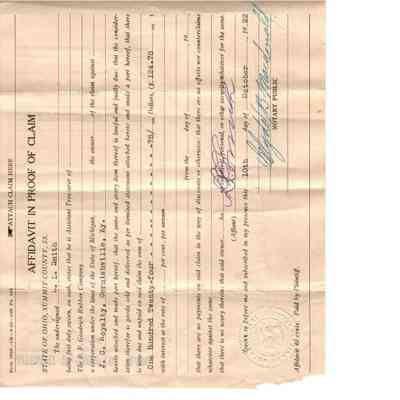 ATTACH CLAIM HERE
AFFIDAVIT IN PROOF OF CLAIM
STATE OF OHIO, SUMMIT COUNTY, SS.
The undersigned L. Smith
being first duly sworn, on oath, states that he is Assistant Treasurer of
The B. F. Goodrich Rubber Company
a corporation under the laws of the State of Michigan, the owner of the claim against
J. C. Royalty, Ky.
hereto attached and made part hereof, that the same and every item thereof is lawful and justly due: that the consider-
ation therefor is goods, sold and delivered as per itemized statement attached hereto and made a part hereof, that there
is now due and unpaid on said claim the sum of
One Hundred Twenty-four - - - - - - - - 75/ Dollars, ($ 124.75 )
with interest at the rate of per cent, per annum from the day of 19
that there are no payments on said claim in the way of discounts or otherwise; that there are no offsets nor counterclaims
whatever against the same;
that there is no usury therein that said owner
(Affiant)
Sworn to before me and subscribed in my presence this 10th day of October 1922
NOTARY PUBLIC
Affidavit 40 cents. Paid by Plaintiff.